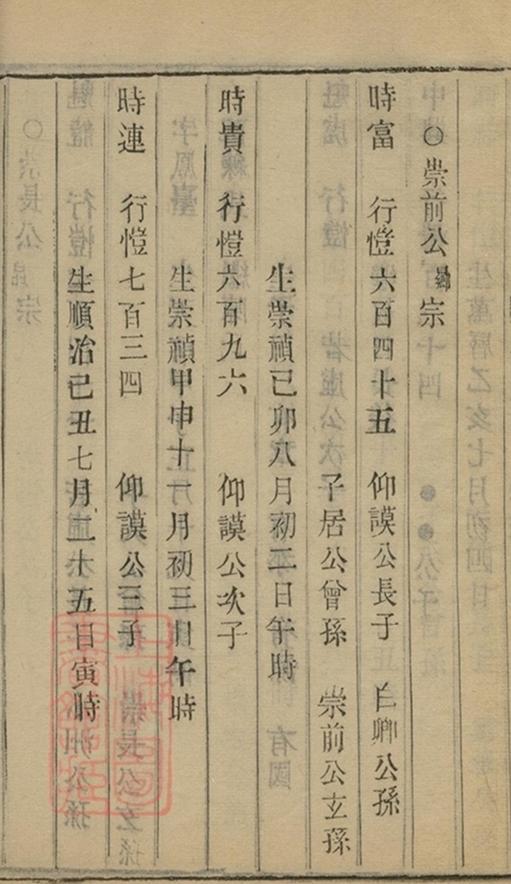 ○崇前公 宗
時富 行愷六百四十五 仰謨公長子 白卿公孫
子居公曾孫 崇前公玄孫
生崇禎己卯八月初二日午時
時貴 行愷六百九六 仰謨公次子
生崇禎甲申十一月初三日午時
時連 行愷七百三四 仰謨公三子
生順治己丑七月二十五日寅時